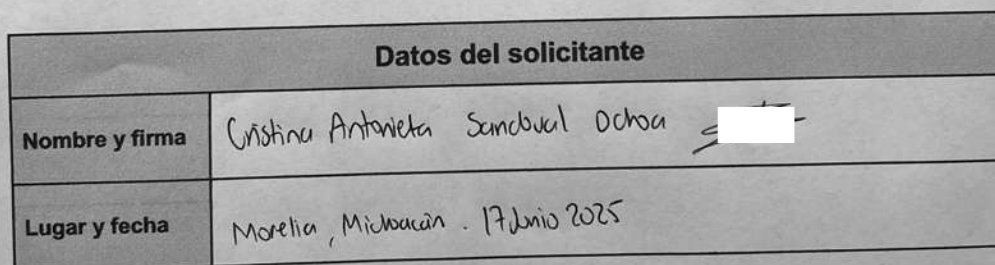 Datos del solicitante
Nombre y firma Cristina Antonieta Sandoval Ochoa
Lugar y fecha Morelia, Michoacán. 17 Junio 2025